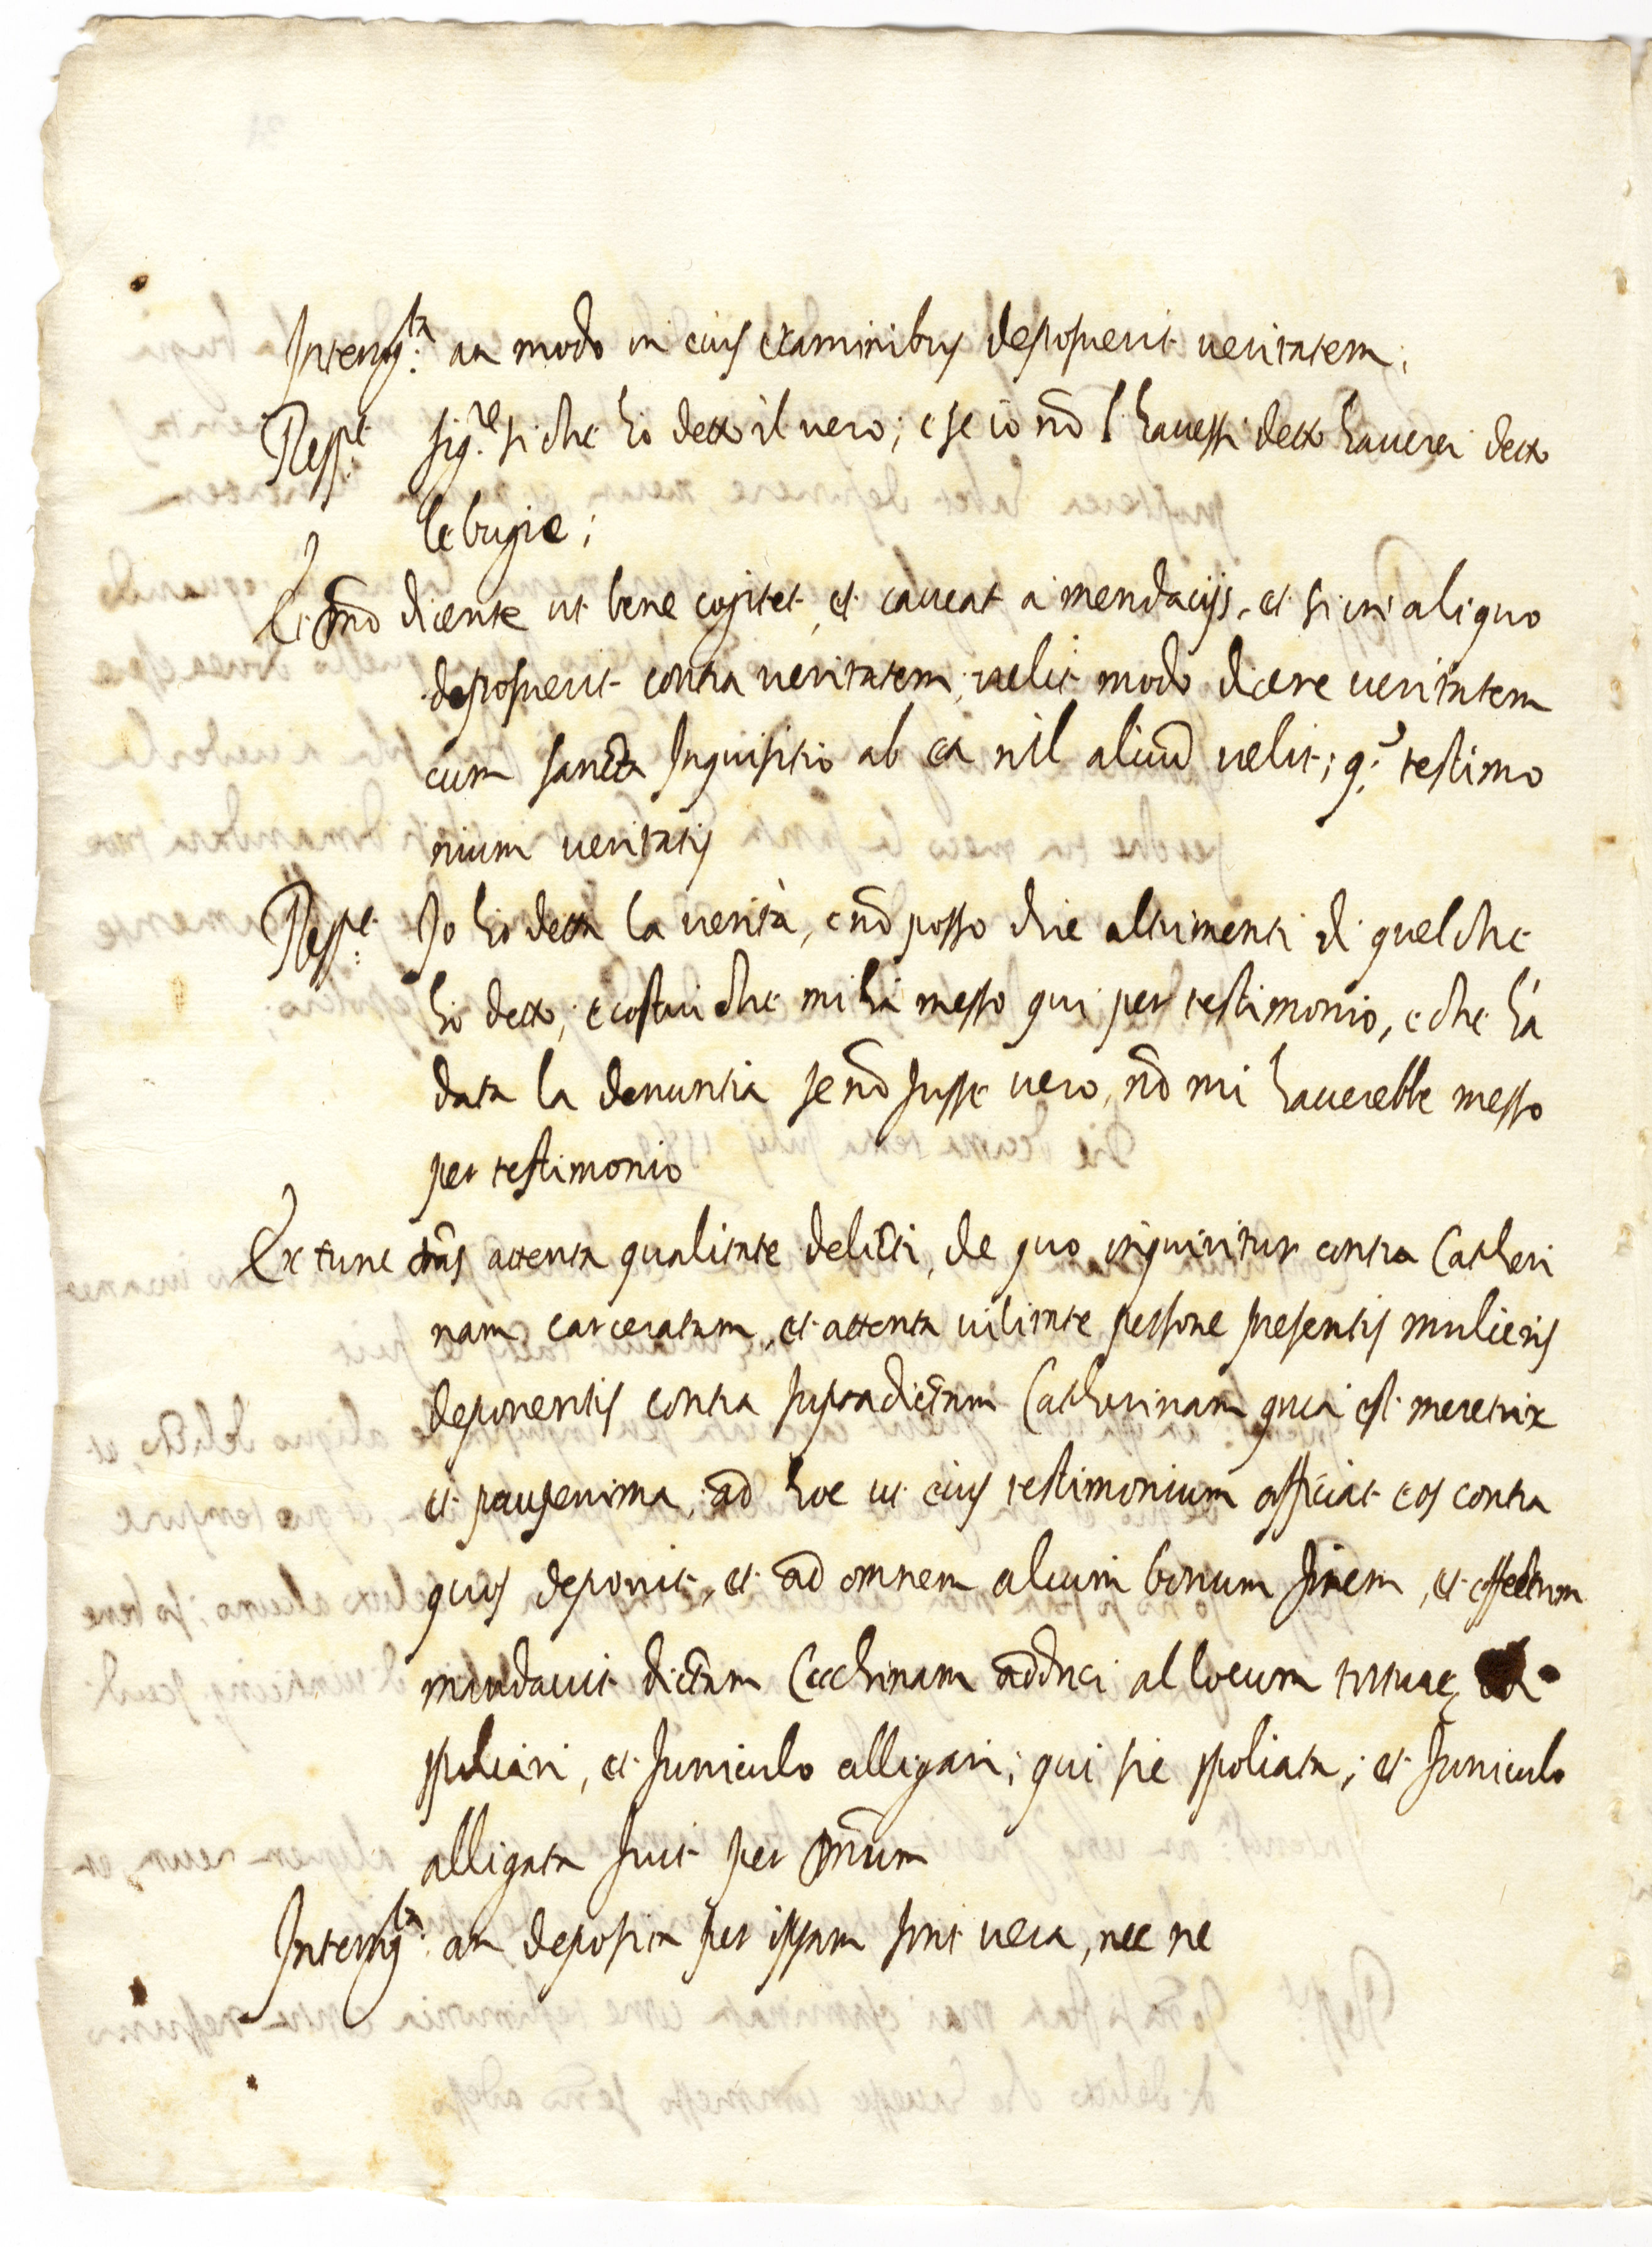 Interrog.ta an modo in eius examinibus deposuerit veritatem;
Resp.t sig.re si che hò detto il vero; e se io nō l'havessi detto haverei detto
le bugie;
Et dño dicente ut bene cogitet, et caveat à mendacijs, et si in aliquo
deposuerit contra veritatem, velit modo dicere veritatem
cum sancta Inquisitio ab ea nil aliud velit; q.³ testimo
nium veritatis
Resp.t Io hò detta la verità, e nō posso dire altrimenti di quel che
hò detto; e costui che mi hà messo qui per testimonio, e che hà
data la denuntia se nō fusse vero, nō mi haverebbe messo
per testimonio
Ex tunc attenta qualitate delicti, de quo inquiritur contra Catheri
nam carceratam, et attenta vilitate persone presentis mulieris
deponentis contra supradictam Catherinam quia est meretrix
et pauperima, ad hoc ut eius testimonium afficiat eos contra
quos deponit, et ad omnem alium bonum finem, et effectum
mandavit dictam Cecchinam adduci al locum torturae,
spoliari, et funiculo alligari; qui sic spoliata, et funiculo
alligata fuit per
Interrog.ta an deposita per ipsam sint vera, nec ne